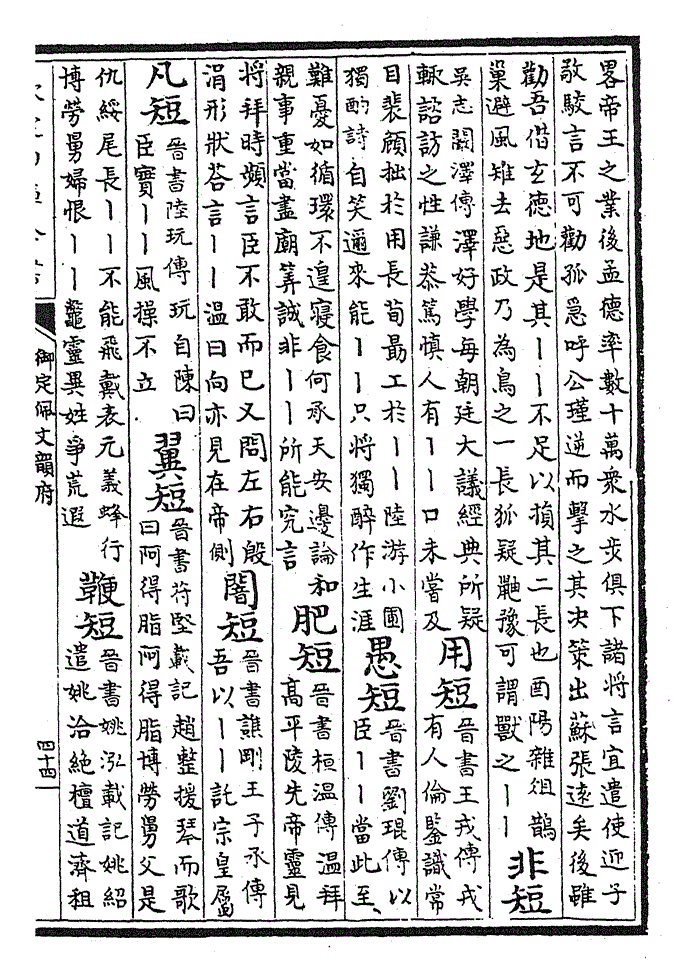 畧帝王之業後孟德率數十萬衆水步俱下諸將言宜遣使迎子
敬駮言不可勸孤急呼公瑾逆而擊之其決策出蘇張遠矣後雖
勸吾借玄德地是其丨丨不足以損其二長也酉陽雜俎鵲
巢避風雉去惡政乃為鳥之一長狐疑鼬豫可謂獸之丨丨
非短
吳志闞澤傳澤好學每朝廷大議經典所疑
輒諮訪之性謙恭篤慎人有丨丨口未嘗及
用短
晉書王戎傳戎
有人倫鑒識常
目裴頠拙於用長荀勗工於丨丨陸游小圃
獨酌詩自笑邇來能丨丨只將獨醉作生涯
愚短
晉書劉琨傳以
臣丨丨當此至
難憂如循環不遑寢食何承天安邊論和
親事重當盡廟筭誠非丨丨所能究言
肥短
晉書桓温傳温拜
高平陵先帝靈見
將拜時頻言臣不敢而已又問左右殷
涓形狀荅言丨丨温曰向亦見在帝側
闇短
晉書譙剛王子承傳
吾以丨丨託宗皇屬
凡短
晉書陸玩傳玩自陳曰
臣實丨丨風操不立
翼短
晉書苻堅載記趙整援琴而歌
曰阿得脂阿得脂博勞舅父是
仇綏尾長丨丨不能飛戴表元義蜂行
博勞舅婦恨丨丨鼊靈異姓爭荒遐
鞭短
晉書姚泓載記姚紹
遣姚洽絶檀道濟租
御定佩文韻府
四十四